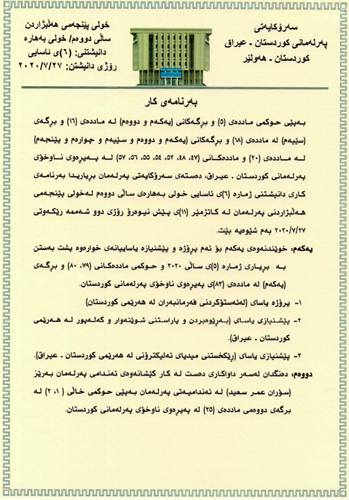 سەرۆکایەتی
پەرلەمانی کوردستان ـ عیراق
کوردستان ـ هەولێر
خولی پێنجەمی هەڵبژاردن
ساڵی دووەم/ خولی بەهارە
دانیشتنی: (٦)ی ئاسایی
ڕۆژی دانیشتن: ٢٠٢٠/٧/٢٧
بەرنامەی کار
بەپێی حوکمی ماددەی (٥) و بڕگەکانی (یەکەم و دووەم) لە ماددەی (١٦) و بڕگەی
(سێیەم) لە ماددەی (١٨) و بڕگەکانی (یەکەم و دووەم و سێیەم و چوارەم و پێنجەم)
لە ماددەی (٢٠) و ماددەکانی (٤٧، ٤٨، ٥٢، ٥٤، ٥٥، ٥٦، ٥٧) لە پەیڕەوی ناوخۆی
پەرلەمانی کوردستان ـ عیراق، دەستەی سەرۆکایەتی پەرلەمان بڕیاریدا بەرنامەی
کاری دانیشتنی ژمارە (٦)ی ئاسایی خولی بەهارەی ساڵی دووەم لەخولی پێنجەمی
هەڵبژاردنی پەرلەمان لە کاتژمێر (١١)ی پێش نیوەڕۆ ڕۆژی دوو شەممە ڕێکەوتی
٢٠٢٠/٧/٢٧ بەم شێوەیە بێت.
یەکەم: خوێندنەوەی یەکەم بۆ ئەم پڕۆژە و پێشنیازە یاساییانەی خوارەوە پشت بەستن
بە بڕیاری ژمارە (٥)ی ساڵی ٢٠٢٠ و حوکمی ماددەکانی (٧٩، ٨٠) و بڕگەی
(یەکەم) لە ماددەی (٨٣)ی پەیڕەوی ناوخۆی پەرلەمانی کوردستان.
١- پڕۆژە یاسای (لەئەستۆکردنی فەرمانبەران لە هەرێمی کوردستان)
٢- پێشنیازی یاسای (بەڕێوەبردن و پاراستنی شوێنەوار و کەلەپور لە هەرێمی
کوردستان ـ عیراق).
٣- پێشنیازی یاسای (ڕێکخستنی میدیای ئەلیکترۆنی لە هەرێمی کوردستان ـ عیراق).
دووەم: دەنگدان لەسەر داواکاری دەست لە کار کێشانەوەی ئەندامی پەرلەمان بەڕێز
(سۆران عمر سعید) لە ئەندامیەتی پەرلەمان بەپێی حوکمی خاڵی (١، ٢) لە
بڕگەی دووەمی ماددەی (٢٥) لە پەیڕەوی ناوخۆی پەرلەمانی کوردستان.